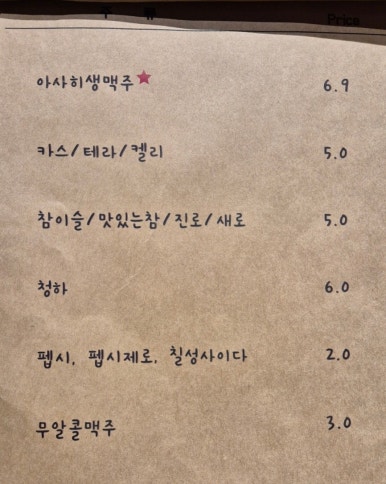 주 류 Price
아사히생맥주★ 6.9
카스/테라/켈리 5.0
참이슬/맛있는참/진로/새로 5.0
청하 6.0
펩시, 펩시제로, 칠성사이다 2.0
무알콜맥주 3.0